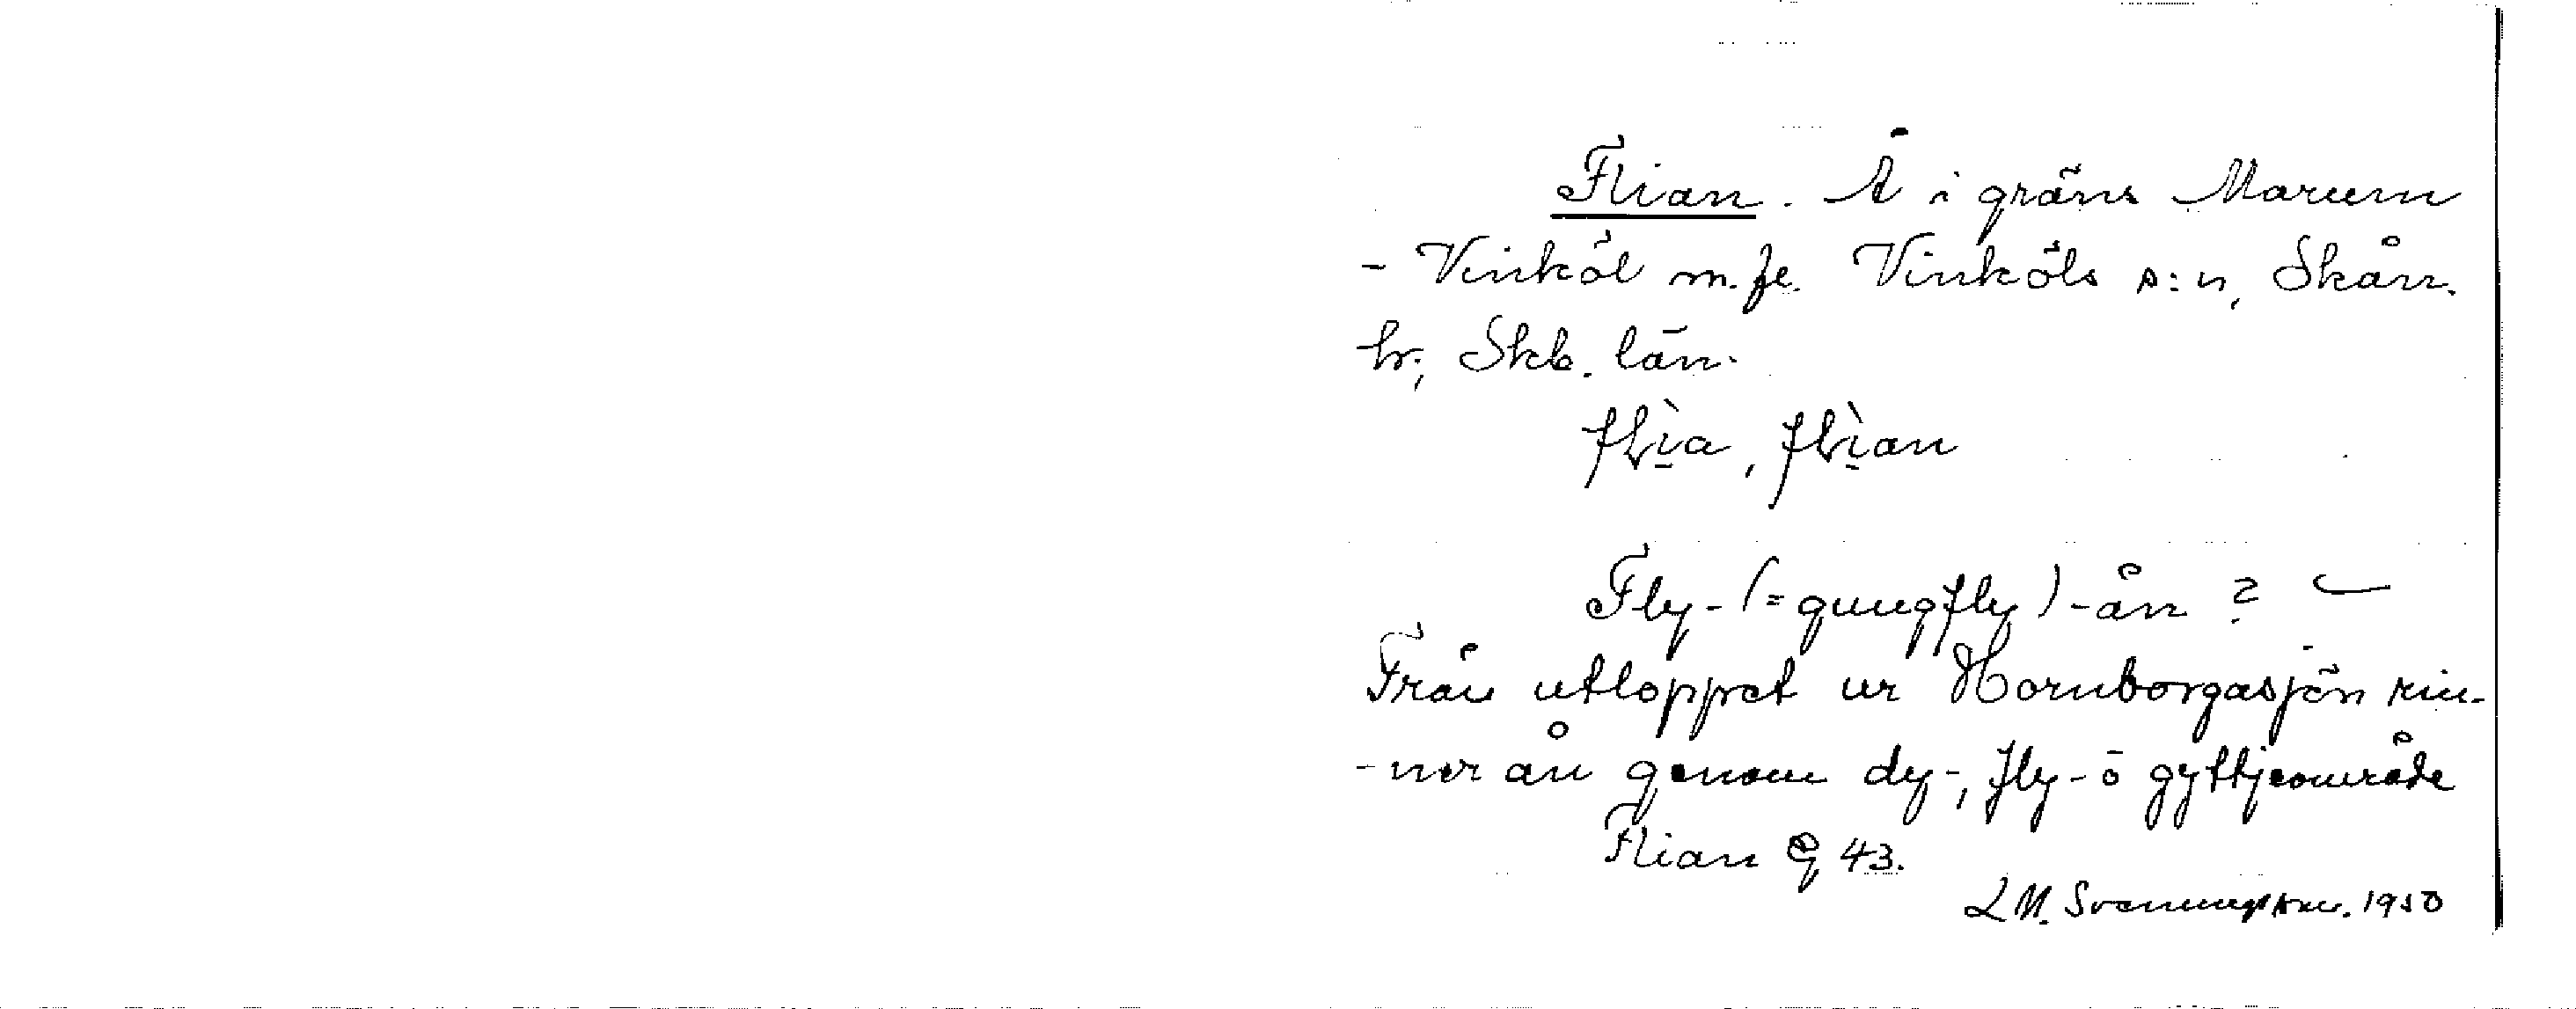 Flian. Å i gräns Marum
- Vinköl m.fl. Vinköls s:n, Skån.
hr; Skb. län.
flìa, flìan
Fly- (=gungfly) -ån ?
Från utloppet ur Hornborgasjön rin-
-ner ån genom dy-, fly- o gyttjeområde
Flian G 43.
L M. Svenungsson. 1950